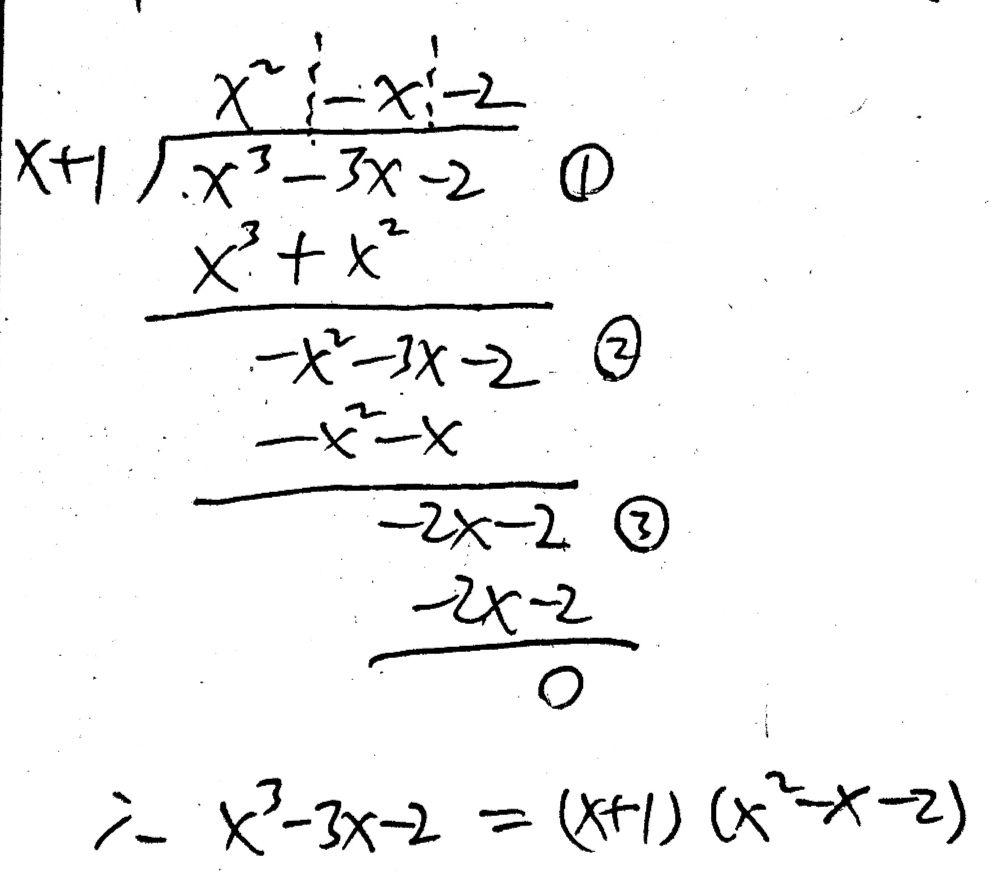 x² - x - 2
x+1 ) x³ - 3x - 2 ①
x³ + x²
-x² - 3x - 2 ②
-x² - x
-2x - 2 ③
-2x - 2
0
∴ x³ - 3x - 2 = (x+1) (x² - x - 2)